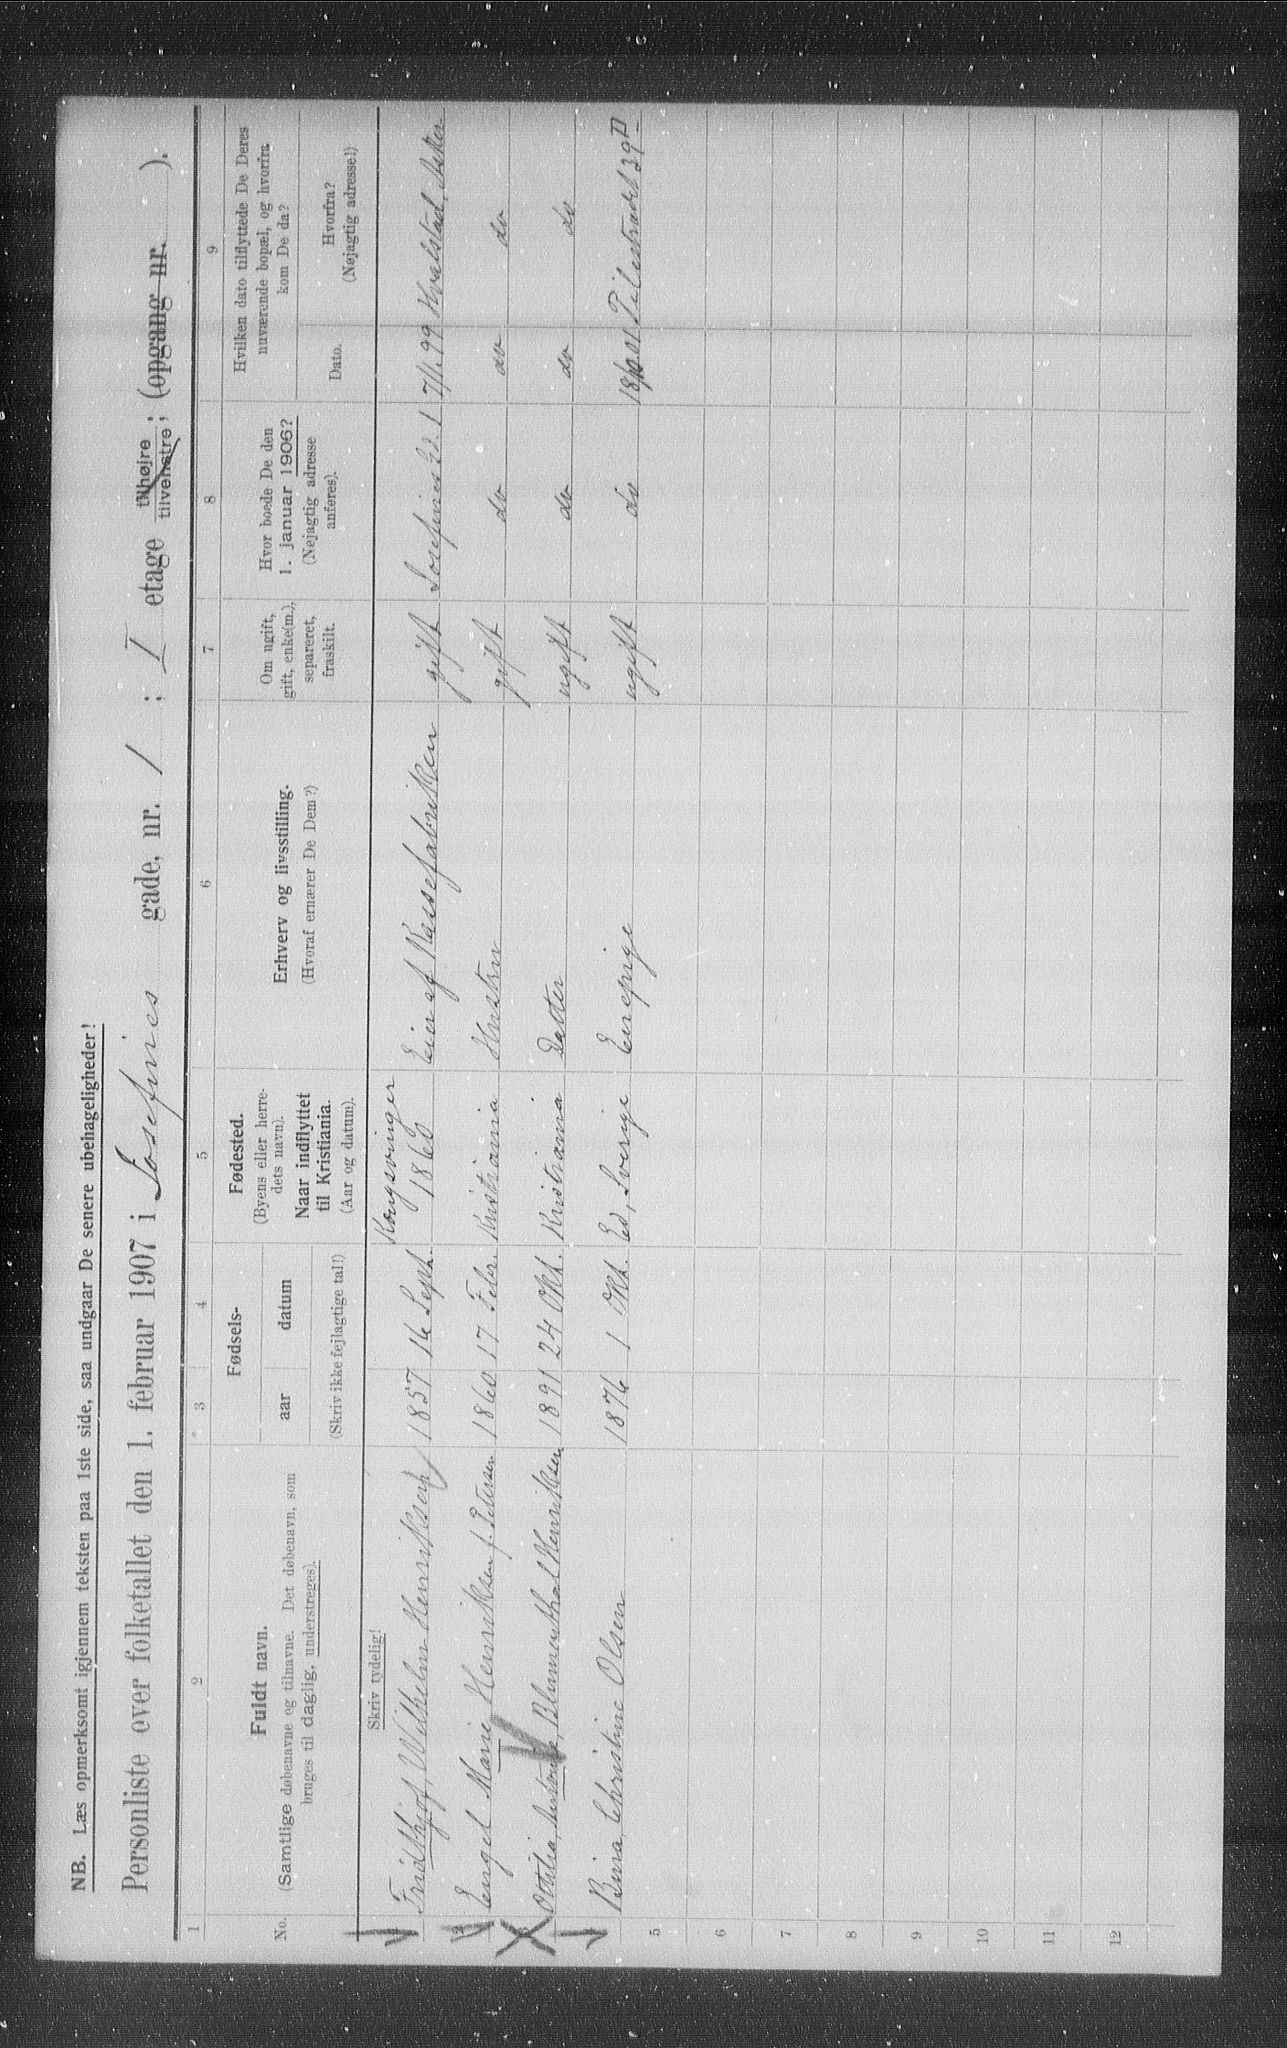 NB. Læs opmerksomt igjennem teksten paa 1ste side, saa undgaar De senere ubehageligheder!
Personliste over folketallet den 1. februar 1907 i Josefines gade, nr. 1 ; I etage tilhøire tilvenstre ; (opgang nr. ).
1 2 3 4 5 6 7 8 9
No.
Fuldt navn.
(Samtlige døbenavne og tilnavne. Det døbenavn, som
bruges til daglig, understreges).
Fødsels-
aar datum
(Skriv ikke fejlagtige tal!)
Fødested.
(Byens eller herre-
dets navn).
Naar indflyttet
til Kristiania.
(Aar og datum).
Erhverv og livsstilling.
(Hvoraf ernærer De Dem?)
Om ugift,
gift, enke(m.),
separeret,
fraskilt.
Hvor boede De den
1. januar 1906?
(Nøjagtig adresse
anføres).
Hvilken dato tilflyttede De Deres
nuværende bopæl, og hvorfra
kom De da?
Dato.
Hvorfra?
(Nøjagtig adresse!)
Skriv tydelig!
Fridthjof, Wilhelm Henriksen 1857 16 Sept. Kongsvinger 1860 Eier af Kassefabrikken gift Josefinesgd. 1 7/1 99 Hvalstad, Asker
Engel Marie Henriksen f. Petersen 1860 17 Febr. Kristiania Hustru gift do do do
Ottilia, Blumenthal Henriksen 1891 24 Okt. Kristiania Datter ugift do do do
Bina, Christine Olsen 1876 1 Okt. Ed, Sverige Enepige ugift do Pilestrædet 39
5
6
7
8
9
10
11
12